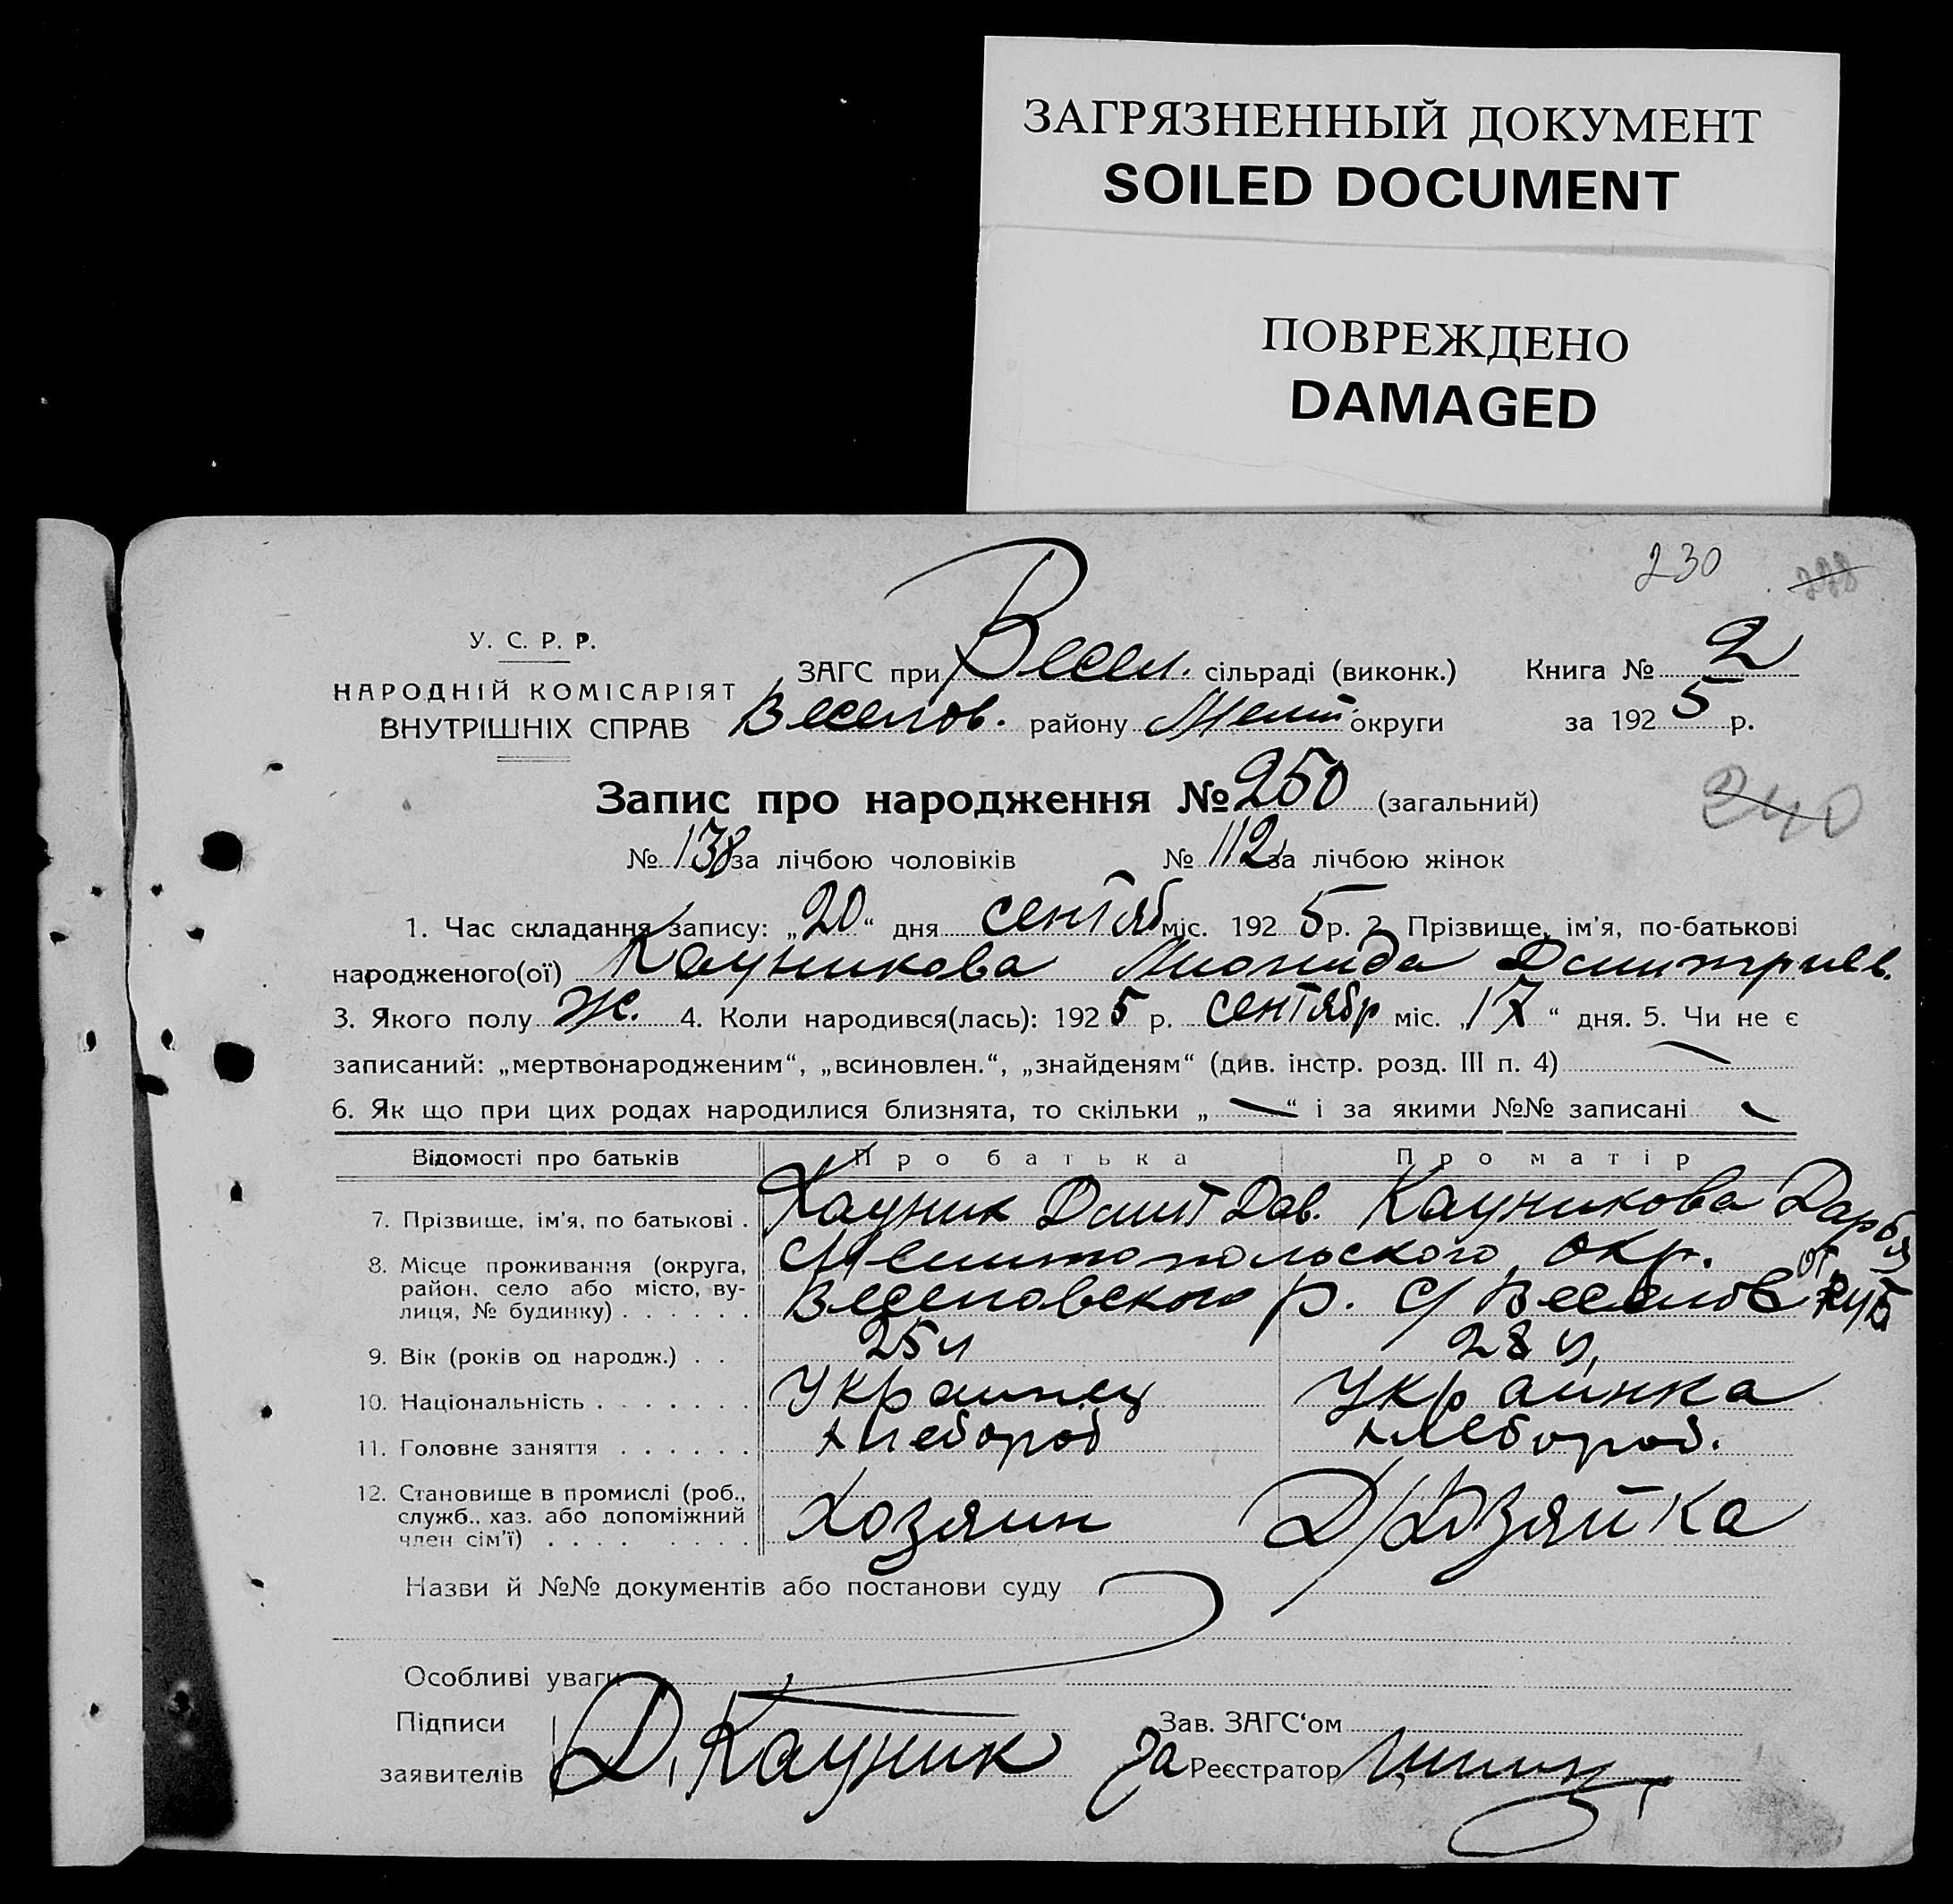 ЗАГРЯЗНЕННЫЙ ДОКУМЕНТ
SOILED DOCUMENT
ПОВРЕЖДЕНО
DAMAGED
230
У. С. Р. Р.
НАРОДНІЙ КОМІСАРІЯТ
ВНУТРІШНІХ СПРАВ
ЗАГС при Весел. сільраді (виконк.) Книга № 2
Веселов. району Мелит. округи за 1925 р.
Запис про народження № 250 (загальний)
240
№ 138 за лічбою чоловіків № 112 за лічбою жінок
1. Час складання запису: „20“ дня сентяб міс. 1925 р. 2. Прізвище, ім'я, по-батькові
народженого(ої) Кауникова Дмитриев.
3. Якого полу ж. 4. Коли народився(лась): 1925 р. сентябр міс. „17“ дня. 5. Чи не є
записаний: „мертвонародженим“, „всиновлен.“, „знайденям“ (див. інстр. розд. III п. 4)
6. Як що при цих родах народилися близнята, то скільки „ “ і за якими №№ записані
Відомості про батьків Про батька Про матір
7. Прізвище, ім'я, по батькові . Кауник Дмит Дав. Кауникова Дарья
8. Місце проживання (округа, Мелитопольского окр.
район, село або місто, ву-
лиця, № будинку) . . . . . . Веселовского р. с/ Веселов
9. Вік (років од народж.) . . 25 28
10. Національність . . . . . . . Украинец Украинка
11. Головне заняття . . . . . . Хлебороб Хлебороб.
12. Становище в промислі (роб.,
служб., хаз. або допоміжний Хозяин Д/Хозяйка
член сім'ї) . . . . . . . .
Назви й №№ документів або постанови суду
Особливі уваги
Підписи Зав. ЗАГС'ом
заявителів Д. Кауник За Реєстратор